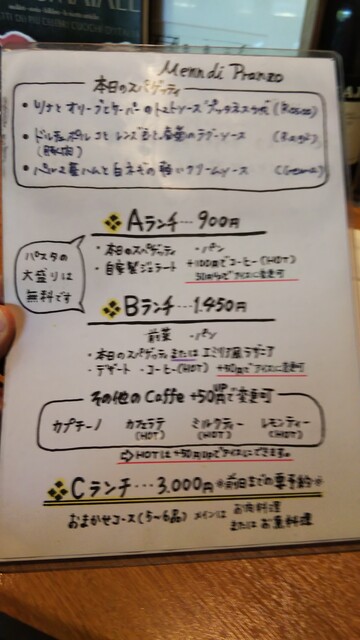 Menu di Pranzo
本日のスパゲッティ
・ツナとオリーブとケーパーのトマトソース プッタネスカ風 (Rosso)
・ドルチェポルコとレンズ豆と のラグーソース (Ragù)
・パルマ産ハムと白ネギの軽いクリームソース
Aランチ・・・900円
・本日のスパゲッティ ・パン
・自家製ジェラート +100円でコーヒー(HOT)
50円upでアイスに変更可
パスタの
大盛りは
無料です
Bランチ・・・1.450円
前菜 ・パン
・本日のスパゲッティ または エミリア風ラザニア
・デザート ・コーヒー(HOT) +50円でアイスに変更可
その他のCaffe +50円UPで変更可
カプチーノ カフェラテ ミルクティー レモンティー
(HOT) (HOT) (HOT)
⇨HOTは+50円upでアイスにできます。
Cランチ・・・3.000円 ※前日までの要予約※
おまかせコース(5～6品) メインは お肉料理
または お魚料理